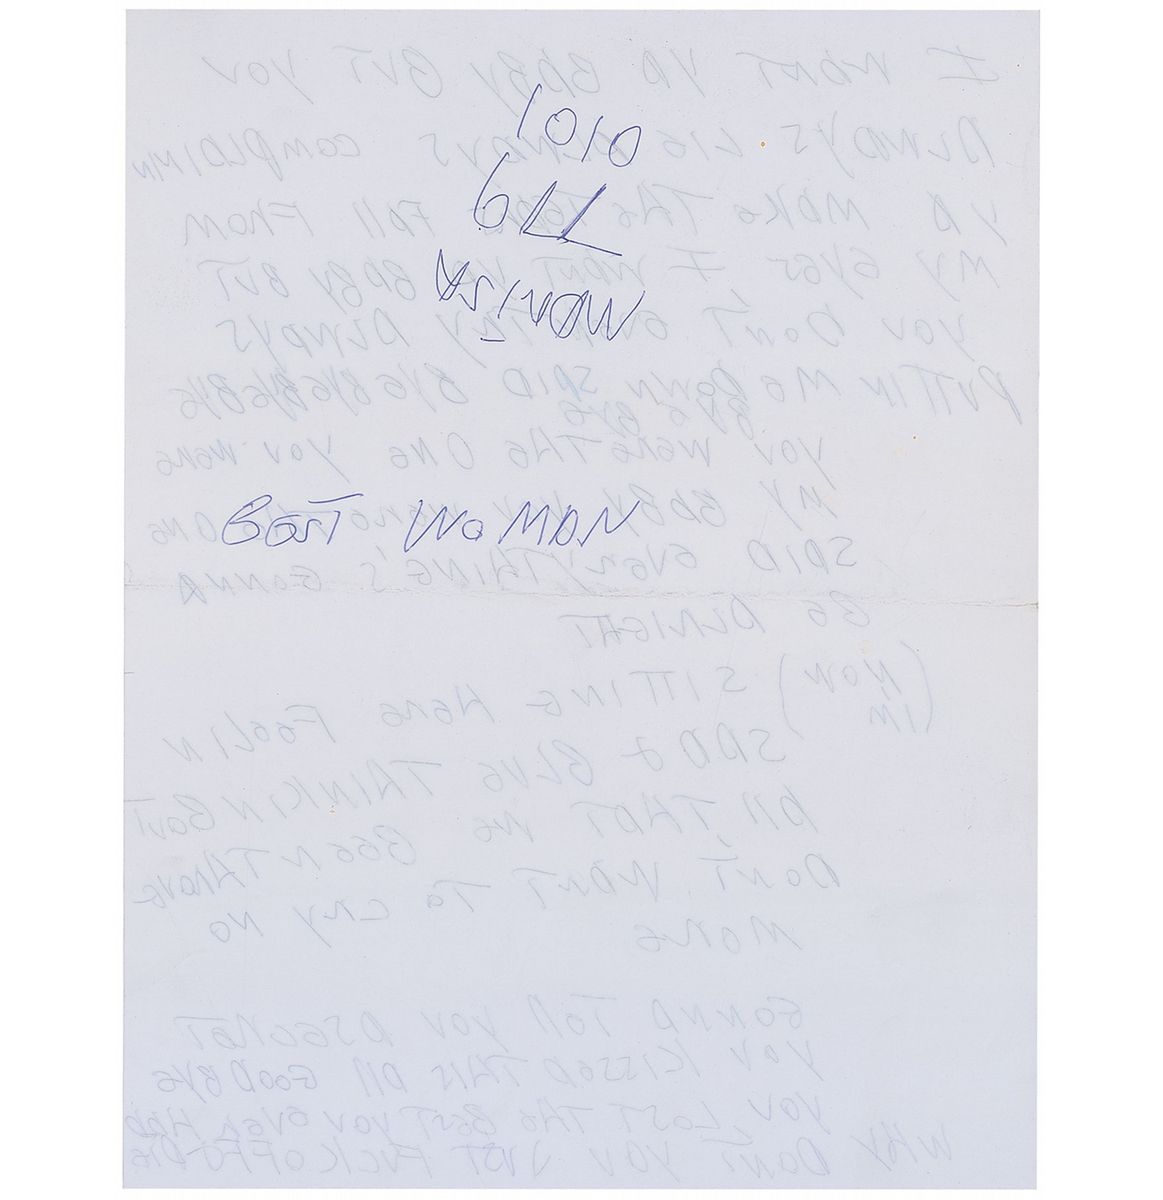 MARISA
779
0101
BEST WOMAN
I WANT YA BABY BUT YOU
ALWAYS LIE ALWAYS COMPLAININ
YA MAKE THE TEARS FALL FROM
MY EYES I WANT YA BABY BUT
YOU DON'T EVEN TRY ALWAYS
PUTTIN ME DOWN SAID BYEBYEBYEBYE
BYE BYE
YOU WERE THE ONE YOU WERE
MY BABY YOU WERE THE ONE
SAID EVERYTHING'S GONNA
BE ALRIGHT
(NOW IM) SITTING HERE FEELIN
SAD & BLUE THINKIN BOUT
ALL THAT WE BEEN
DON'T WANT TO CRY NO
MORE
GONNA TELL YOU A SECRET
YOU KISSED THIS ALL GOODBYE
YOU LOST THE BEST YOU EVER HAD
WHY DON'T YOU JUST FUCK OFF & DIE